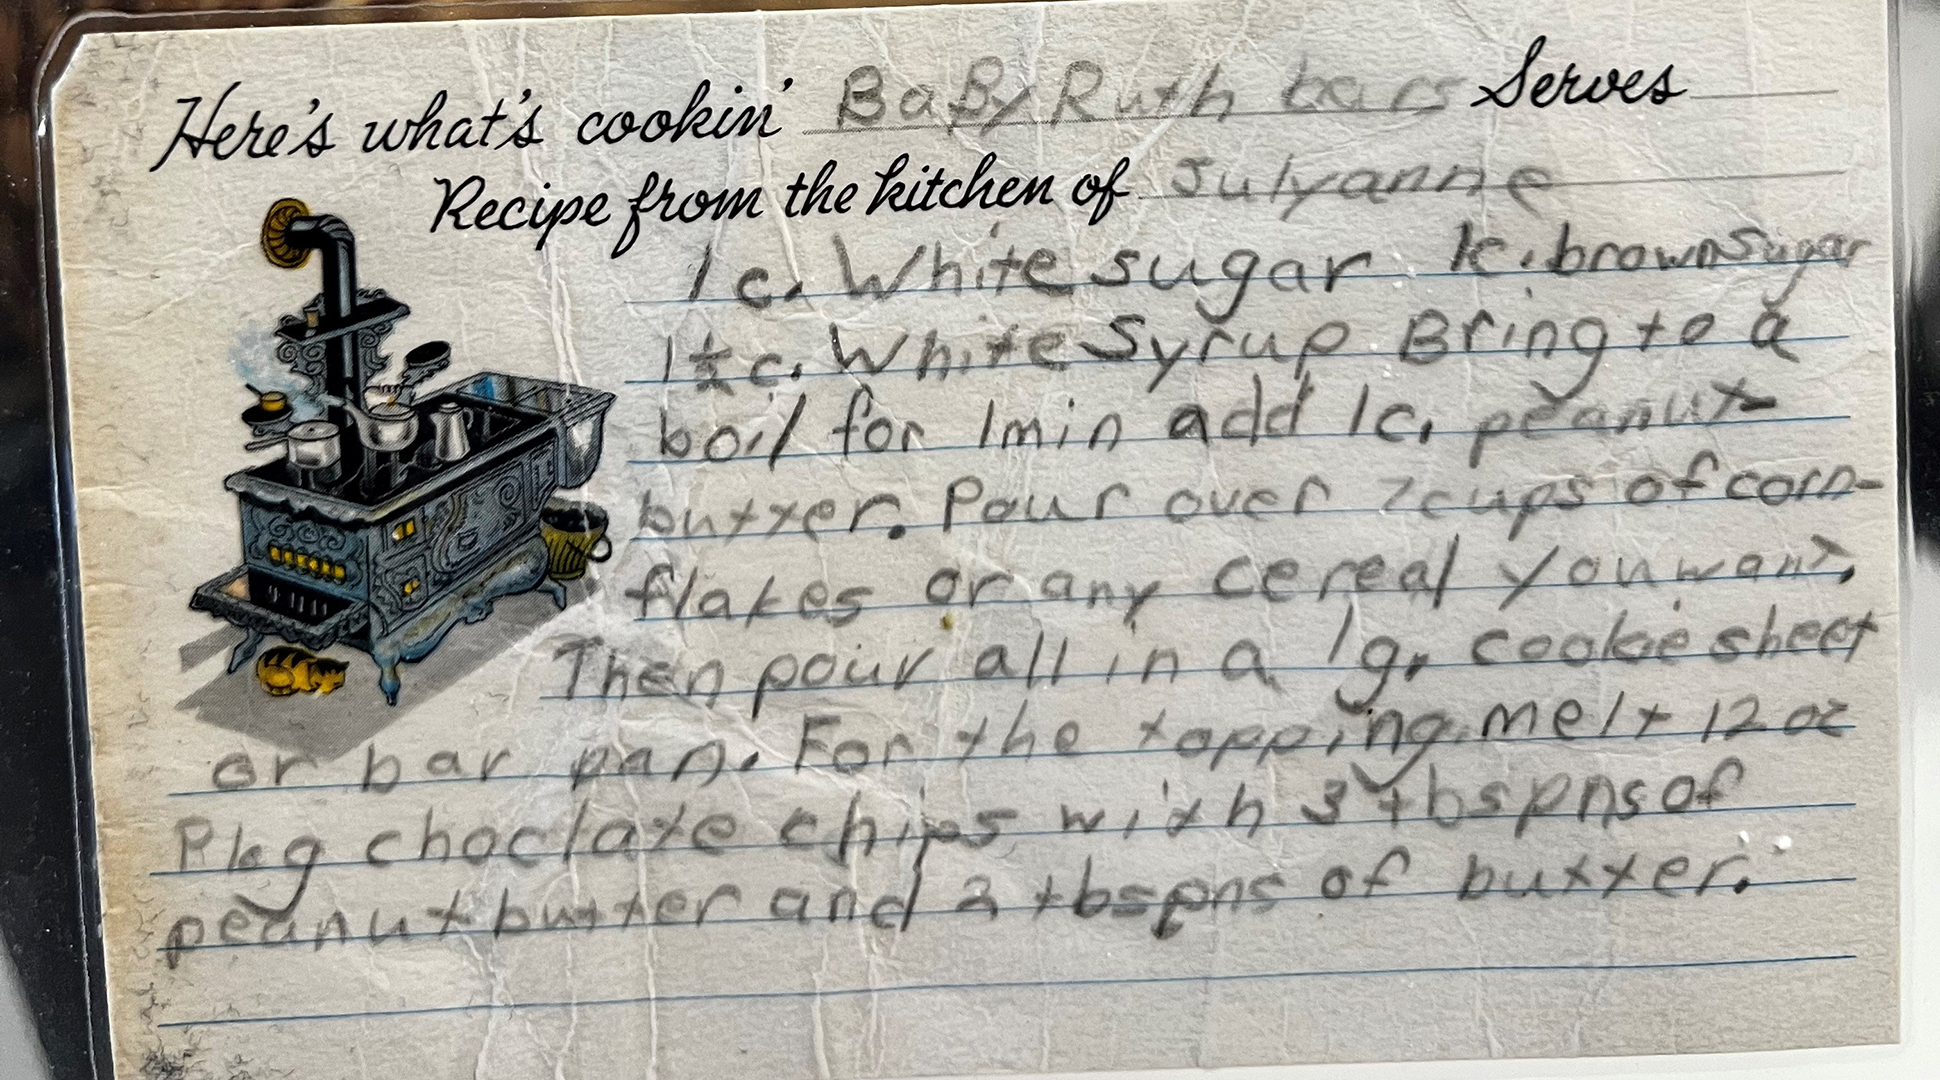 Here's what's cookin' BaBy Ruth bars Serves
Recipe from the kitchen of Julyanne
1 c. White sugar 1c. brown sugar
1½ c. White Syrup Bring to a
boil for 1 min add 1c. peanut
butter. Pour over 7 cups of corn-
flakes or any cereal you want.
Then pour all in a lg. cookie sheet
or bar pan. For the topping melt 12 oz
Pkg choclate chips with 3 tbspns of
peanut butter and 2 tbspns of butter.